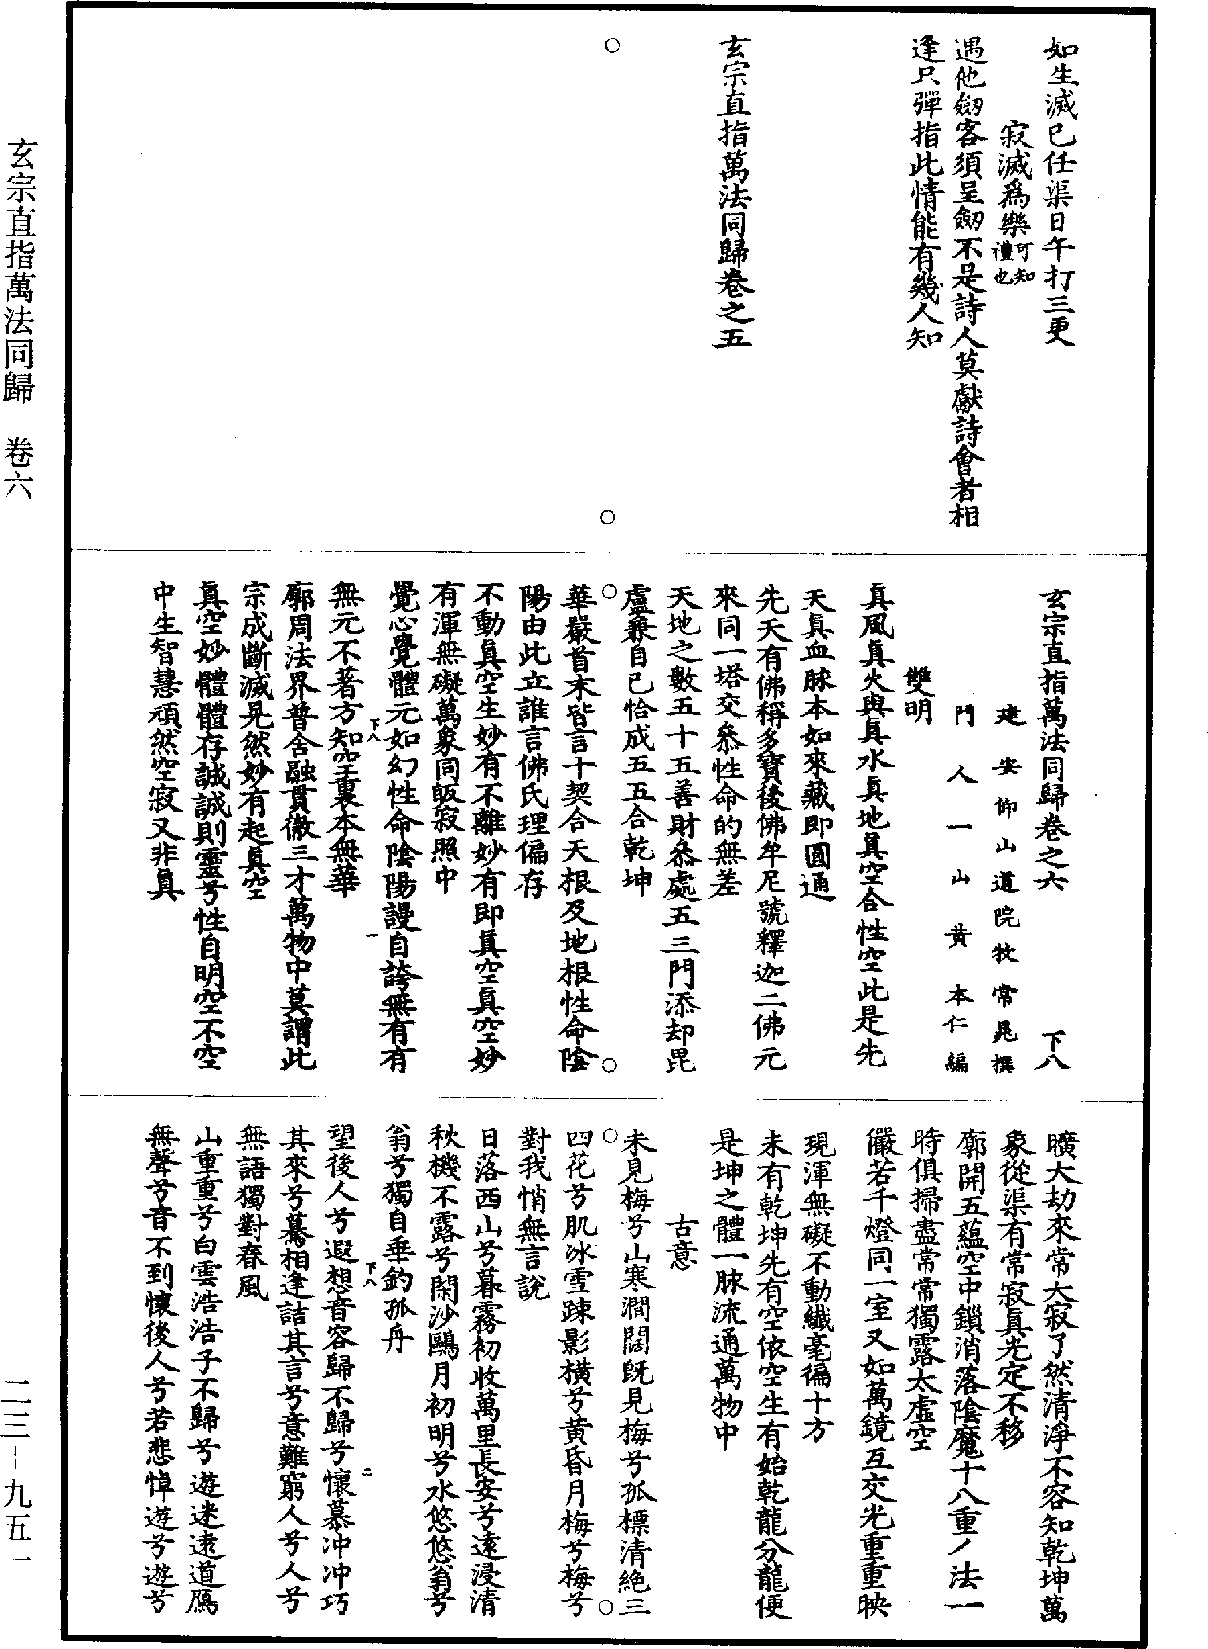 如生滅已任渠日午打三更
寂滅爲樂可知禮也
遇他劒客須呈劒不是詩人莫獻詩會者相
逢只彈指此情能有幾人知
玄宗直指萬法同歸卷之五
玄宗直指萬法同歸卷之六 下八
建安仰山道院牧常晁撰
門人一山黃本仁編
雙明
真風真火與真水真地真空合性空此是先
天真血脉本如來藏即圓通
先天有佛稱多寶後佛牟尼號釋迦二佛元
來同一塔交叅性命的無差
天地之數五十五善財叅處五三門添却毘
盧兼自己恰成五五合乾坤
華嚴首末皆言十契合天根及地根性命陰
陽由此立誰言佛氏理偏存
不動真空生妙有不離妙有即真空真空妙
有渾無礙萬象同皈寂照中
覺心覺體元如幻性命陰陽謾自誇無有有
無元不著方知空裏本無華
廓周法界普含融貫徹三才萬物中莫謂此
宗成斷滅晃然妙有起真空
真空妙體體存誠誠則靈兮性自明空不空
中生智慧頑然空寂又非真
下八 一
曠大劫來常大寂了然清淨不容知乾坤萬
象從渠有常寂真光定不移
廓開五蘊空中鎖消落陰魔十八重八法一
時俱掃盡常常獨露太虛空
儼若千燈同一室又如萬鏡互交光重重映
現渾無礙不動纖毫徧十方
未有乾坤先有空依空生有始乾龍分龍便
是坤之體一脉流通萬物中
古意
未見梅兮山寒澗闊旣見梅兮孤標清絶三
四花兮肌冰雪疎影橫兮黃昏月梅兮梅兮
對我悄無言說
日落西山兮暮霧初收萬里長安兮遠浸清
秋機不露兮閑沙鷗月初明兮水悠悠翁兮
翁兮獨自垂釣孤舟
望後人兮遐想音容歸不歸兮懷慕沖沖巧
其來兮驀相逢詰其言兮意難窮人兮人兮
無語獨對春風
山重重兮白雲浩浩子不歸兮遊迷遠道鴈
無聲兮音不到懷後人兮若悲悼遊兮遊兮
下八 二
玄宗直指萬法同歸 卷六
二三-九五一